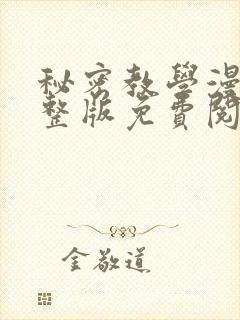 秘密教學漫
整版免費閱
金敬道